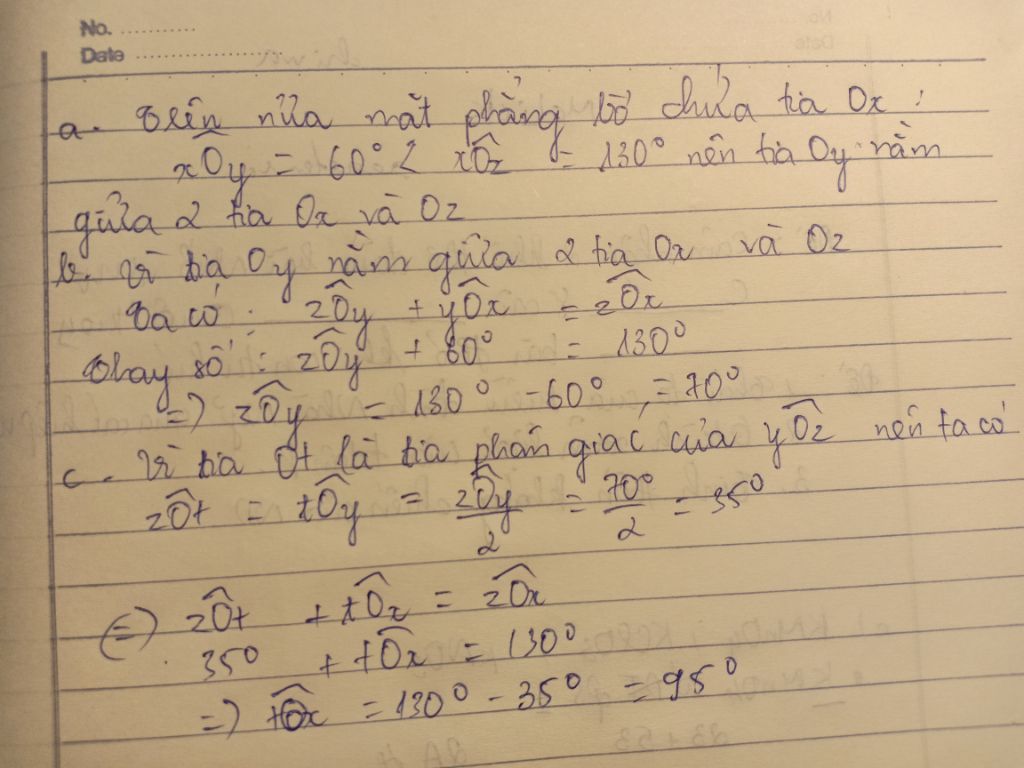 No. ..........
Date ....................
a. Trên nửa mặt phẳng bờ chứa tia Ox :
xÔy = 60° < xÔz = 130° nên tia Oy nằm
giữa 2 tia Ox và Oz
b. Vì tia Oy nằm giữa 2 tia Ox và Oz
Ta có : zÔy + yÔx = zÔx
Thay số : zÔy + 60° = 130°
=> zÔy = 130° - 60° = 70°
c. Vì tia Ot là tia phân giác của yÔz nên ta có
zÔt = tÔy = zÔy/2 = 70°/2 = 35°
(=) zÔt + tÔx = zÔx
35° + tÔx = 130°
=> tÔx = 130° - 35° = 95°